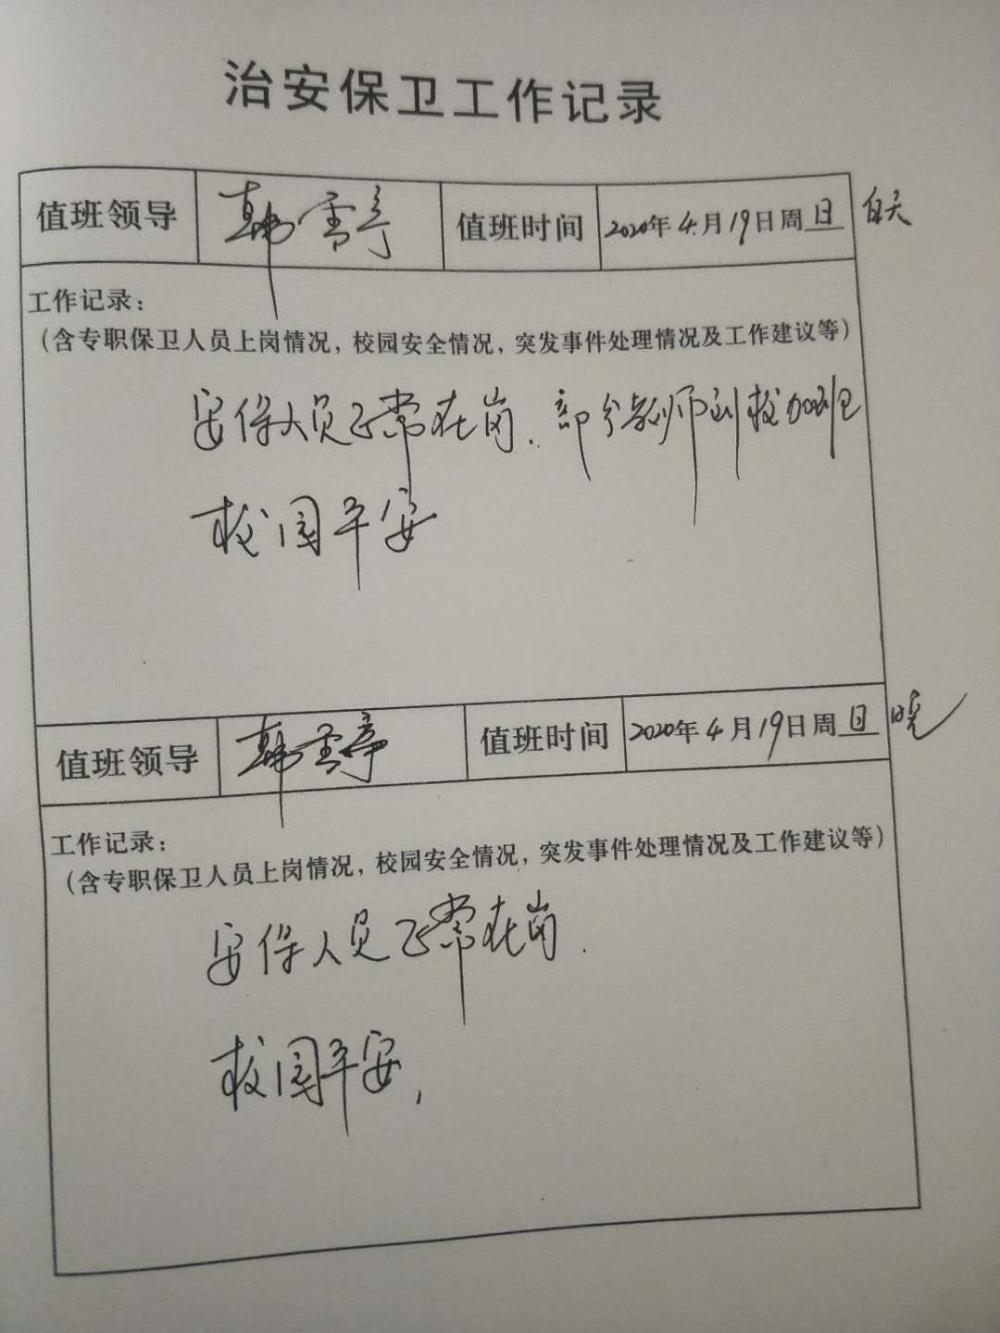 治安保卫工作记录
值班领导 韩雪亭 值班时间 2020年4月19日周日 白天
工作记录：
（含专职保卫人员上岗情况，校园安全情况，突发事件处理情况及工作建议等）
安保人员正常在岗．部分教师到校加班
校园平安
值班领导 韩雪亭 值班时间 2020年4月19日周日 晚
工作记录：
（含专职保卫人员上岗情况，校园安全情况，突发事件处理情况及工作建议等）
安保人员正常在岗．
校园平安，